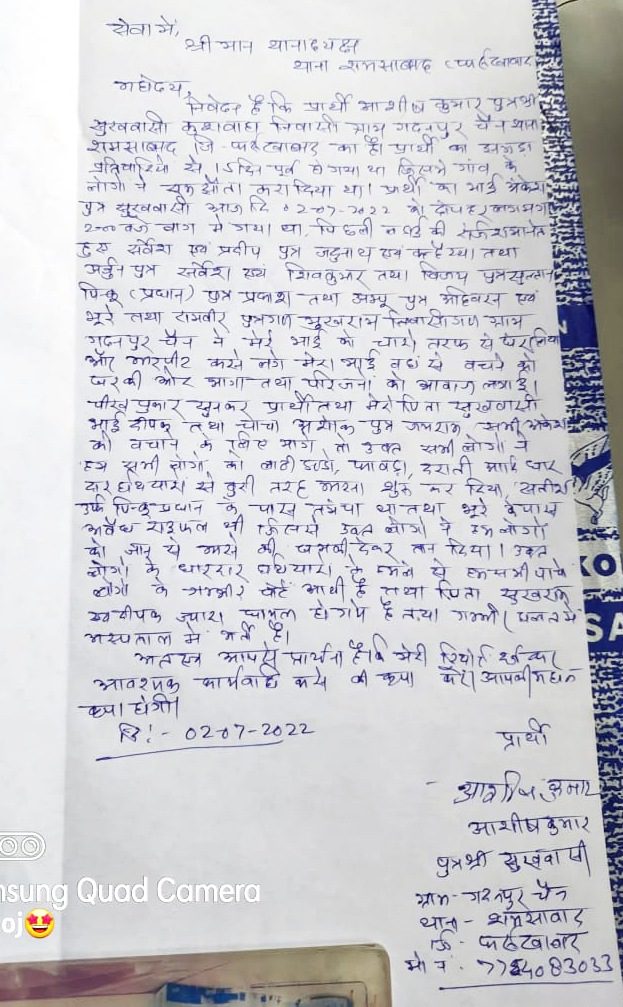 सेवा में,
श्रीमान थानाध्यक्ष
थाना शमसाबाद (फर्रुखाबाद)
महोदय,
निवेदन है कि प्रार्थी आशीष कुमार पुत्र श्री
सुखवासी कुशवाहा निवासी ग्राम गदनपुर चैन थाना
शमसाबाद जि- फर्रुखाबाद का है। प्रार्थी का झगड़ा
प्रतिवादियो से 15 दिन पूर्व हो गया था जिसमे गांव के
लोगो ने समझौता करा दिया था। प्रार्थी का भाई
पुत्र सुखवासी आज दि 02-07-2022 को दोपहर लगभग
2=00 बजे बाग मे गया था, पिछली की रंजिश मानते
हुए सर्वेश एवं प्रदीप पुत्र जदुनाथ एवं कन्हैया तथा
अर्जुन पुत्र सर्वेश एवं शिवकुमार तथा विजय पुत्र
पिन्कू (प्रधान) पुत्र प्रकाश तथा पुत्र एवं
भूरे तथा रामवीर पुत्रगण सुखराम निवासीगण ग्राम
गदनपुर चैन ने मेरे भाई को चारो तरफ से घेर लिया
और मारपीट करने लगे मेरा भाई वहां से बचने को
घर की ओर भागा तथा परिजनो को आवाज लगाई।
चीख पुकार सुनकर प्रार्थी तथा मेरे पिता सुखवासी
भाई दीपक तथा चाचा अशोक पुत्र जयराम सभी
को बचाने के लिए भागे तो उक्त सभी लोगो ने
हम सभी लोगो को लाठी डण्डो, फावड़ा, दराती आदि धार
दार हथियारो से बुरी तरह मारना शुरू कर दिया,
उर्फ पिन्कू प्रधान के पास तमंचा था तथा भूरे के पास
अवैध राइफल थी जिससे उक्त लोगो ने हम लोगो
को जान से मारने की धमकी देकर तान दिया। उक्त
लोगो के धारदार हथियारो के हमले से हम सभी पांचो
लोगो के गम्भीर चोटें आयी है तथा पिता
एवं दीपक ज्यादा घायल हो गये है तथा गम्भीर हालत मे
अस्पताल मे भर्ती है।
अतः आपसे प्रार्थना है कि मेरी रिपोर्ट दर्ज कर
आवश्यक कार्यवाही करने की कृपा करें। आपकी महान
कृपा होगी।
दि:- 02-07-2022
प्रार्थी
आशीष कुमार
आशीष कुमार
पुत्र श्री सुखवासी
ग्राम- गदनपुर चैन
थाना- शमसाबाद
जि- फर्रुखाबाद
मो नं.
KO
SA
msung Quad Camera
oj🤩